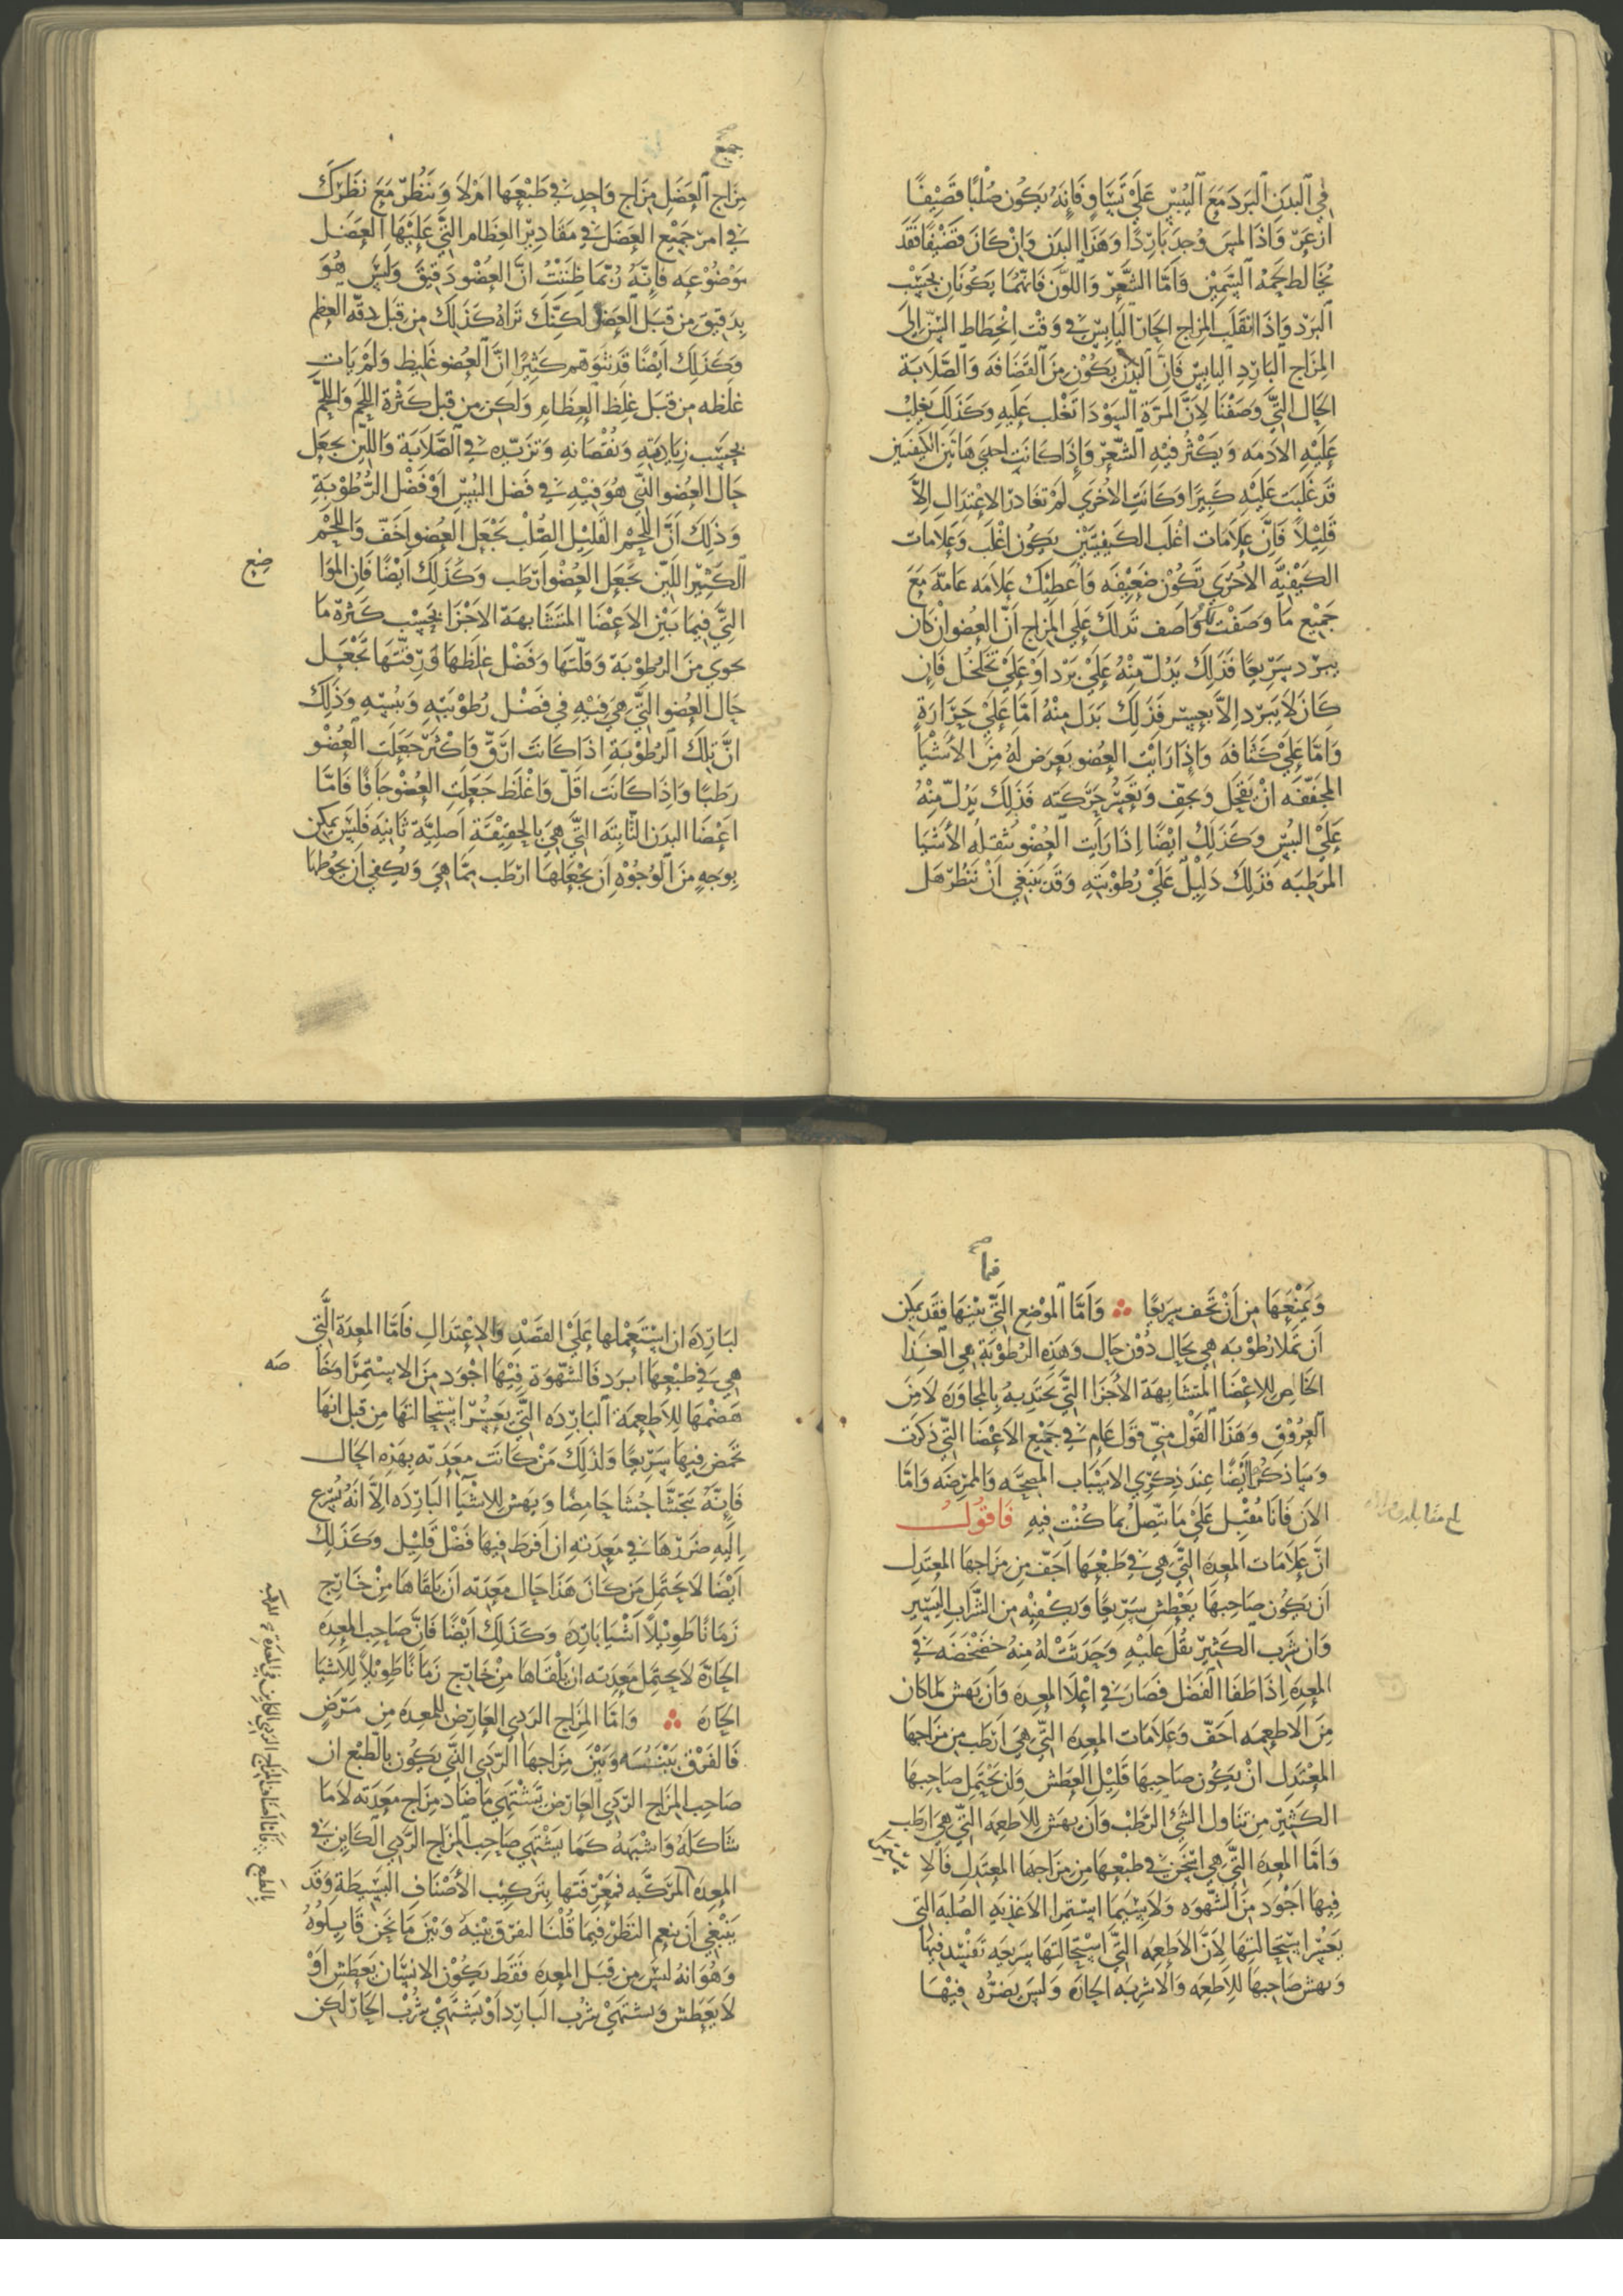 في البدن البرد مع اليبس علي تساو فانه يكون صلبا قضيفا
ازعر واذا لمس وجد باردا وهذا البدن وان كان قضيفا فقد
يخالط لحمه السمين فاما الشعر واللون فانهما يكونان بحسب
البرد واذا انقلب المزاج الحار اليابس في وقت انحطاط السن الى
المزاج البارد اليابس فان البدن يكون من القضافه والصلابة
الحال التي وصفنا لان المرة السودا تغلب عليه وكذلك يغلب
عليه الادمه ويكثر فيه الشعر واذا كانت احدي هاتين الكيفيتين
قد غلبت عليه كثيرا وكانت الاخري لم تغادر الاعتدال الا
قليلا فان علامات اغلب الكيفيتين يكون اغلب وعلامات
الكيفيه الاخري تكون ضعيفه واعطيك علامه عامه مع
جميع ما وصفت واصف تدلك علي المزاج ان العضو ان كان
يبرد سريعا فذلك يدل منه علي برد او علي تخلخل فان
كان لا يبرد الا بعسر فذلك يدل منه اما علي حرارة
واما علي كثافه واذا رايت العضو يعرض له من الاشيا
المجففه ان يقحل ويجف وتعسر حركته فذلك يدل منه
علي اليبس وكذلك ايضا اذا رايت العضو تثقله الاشيا
المرطبه فذلك دليل علي رطوبته وقد ينبغي ان تنظر هل
جميع
مزاج العضل مزاج واحد في طبعها ام لا وتنظر مع نظرك
في امر جميع العضل في مقادير العظام التي عليها العضل
موضوعه فانه ربما ظننت ان العضو دقيق وليس هو
بدقيق من قبل العضل لكنك تراه كذلك من قبل دقه العظم
وكذلك ايضا قد تتوهم كثيرا ان العضو غليظ ولم يات
غلظه من قبل غلظ العظام ولكن من قبل كثرة اللحم واللحم
بحسب زيادته ونقصانه وتزيده في الصلابة واللين يجعل
حال العضو الذي هو فيه في فضل اليبس او فضل الرطوبة
وذلك ان اللحم القليل الصلب يجعل العضو اخف واللحم
الكثير اللين يجعل العضو ارطب وكذلك ايضا فان الموا
ضع
التي فيما بين الاعضا المتشابهة الاجزا بحسب كثرة ما
يحوي من الرطوبة وقلتها وفضل غلظها ورقتها تجعل
حال العضو التي هي فيه في فضل رطوبته ويبسه وذلك
ان تلك الرطوبة اذا كانت ارق واكثر جعلت العضو
رطبا واذا كانت اقل واغلظ جعلت العضو جافا فاما
اعضا البدن الثابته التي هي بالحقيقة اصلية ثانيه فليس يمكن
بوجه من الوجوه ان يجعلها ارطب مما هي ويكفي ان يحوطها
فيما
ويمنعها من ان تجف سريعا واما الموضع التي بينها فقد يمكن
ان تملا رطوبه هي بحال دون حال وهذه الرطوبة هي الغذا
الخاص للاعضا المتشابهة الاجزا التي تجتذبه بالمجاورة لا من
العروق وهذا القول مني قول عام في جميع الاعضا التي ذكرت
وساذكر ايضا عند ذكري الاسباب المصححه والممرضه واما
الان فانا مقبل علي ما يتصل بما كنت فيه فاقول
ان علامات المعده التي هي في طبعها اجف من مزاجها المعتدل
ان يكون صاحبها يعطش سريعا ويكفيه من الشراب اليسير
وان شرب الكثير ثقل عليه وحدثت له منه خضخضه في
المعدة اذا طفا الفضل فصار في اعلا المعده وان يهش لما كان
من الاطعمه اجف وعلامات المعده التي هي ارطب من مزاجها
المعتدل ان يكون صاحبها قليل العطش وان يحتمل صاحبها
الكثير من تناول الشئ الرطب وان يهش للاطعمه التي هي ارطب
واما المعده التي هي اسخن في طبعها من مزاجها المعتدل فالا
ستمرا
فيها اجود من الشهوه ولا سيما استمرا الاغذيه الصلبه التي
يعسر استحالتها لان الاطعمه التي استحالتها سريعه تفسد فيها
ويهش صاحبها للاطعمه والاشربه الحاره وليس يضره فيها
لبارده ان استعملها علي القصد والاعتدال فاما المعدة التي
هي في طبعها ابرد فالشهوة فيها اجود من الاستمرا وخا
صه
هضمها للاطعمة البارده التي يعسر استحالتها من قبل انها
تحمض فيها سريعا ولذلك من كانت معدته بهذه الحال
فانه يتجشا جشا حامضا ويهش للاشيا البارده الا انه يسرع
اليه ضررها في معدته ان افرط فيها فضل قليل وكذلك
ايضا لا يحتمل من كان هذا حال معدته ان يلقاها من خارج
زمانا طويلا اشيا بارده وكذلك ايضا فان صاحب المعده
الحارة لا يحتمل معدته ان يلقاها من خارج زمانا طويلا للاشيا
الحاره واما المزاج الردي العارض للمعده من مرض
فالفرق بينه وبين مزاجها الردي الذي يكون بالطبع ان
صاحب المزاج الردي العارض تشتهي ما ضاد مزاج معدته لا ما
شاكله واشبهه كما يشتهي صاحب المزاج الردي الكاين في
المعدة بالطبع فاما اصناف المزاج الردي الكاين في المعدة
المعده المركبه فمعرفتها بتركيب الاصناف البسيطة وقد
ينبغي ان ينعم النظر فيما قلنا لنفرق بينه وبين ما نحن قايلوه
وهو انه ليس من قبل المعده فقط يكون الانسان يعطش او
لا يعطش ويشتهي شرب البارد او يشتهي شرب الحار لكن